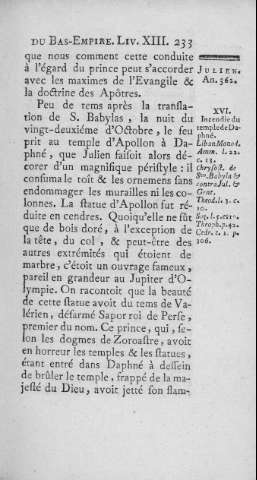 DU BAS-EMPIRE. LIV. XIII. 233
que nous comment cette conduite
à l'égard du prince peut s'accorder
avec les maximes de l'Evangile &
la doctrine des Apôtres.
Peu de tems après la transla-
tion de S. Babylas, la nuit du
vingt-deuxiéme d'Octobre, le feu
prit au temple d'Apollon à Da-
phné, que Julien faisoit alors dé-
corer d'un magnifique péristyle : il
consuma le toît & les ornemens sans
endommager les murailles ni les co-
lonnes. La statue d'Apollon fut ré-
duite en cendres. Quoiqu'elle ne fût
que de bois doré, à l'exception de
la tête, du col, & peut-être des
autres extrémités qui étoient de
marbre, c'étoit un ouvrage fameux,
pareil en grandeur au Jupiter d'O-
lympie. On racontoit que la beauté
de cette statue avoit du tems de Va-
lérien, désarmé Sapor roi de Perse,
premier du nom. Ce prince, qui, se-
lon les dogmes de Zoroastre, avoit
en horreur les temples & les statues,
étant entré dans Daphné à dessein
de brûler le temple, frappé de la ma-
jesté du Dieu, avoit jetté son flam-
JULIEN.
An. 362.
XVI.
Incendie du
temple de Da-
phné.
Liban Monod.
Amm. l. 22.
c. 13.
Chrysost. de
Sto. Babyla &
contra Jul. &
Gent.
Theod. l. 3. c.
10.
Soz. l. 5. c. 20.
Theoph. p. 42.
Cedr. t. 1. p.
306.